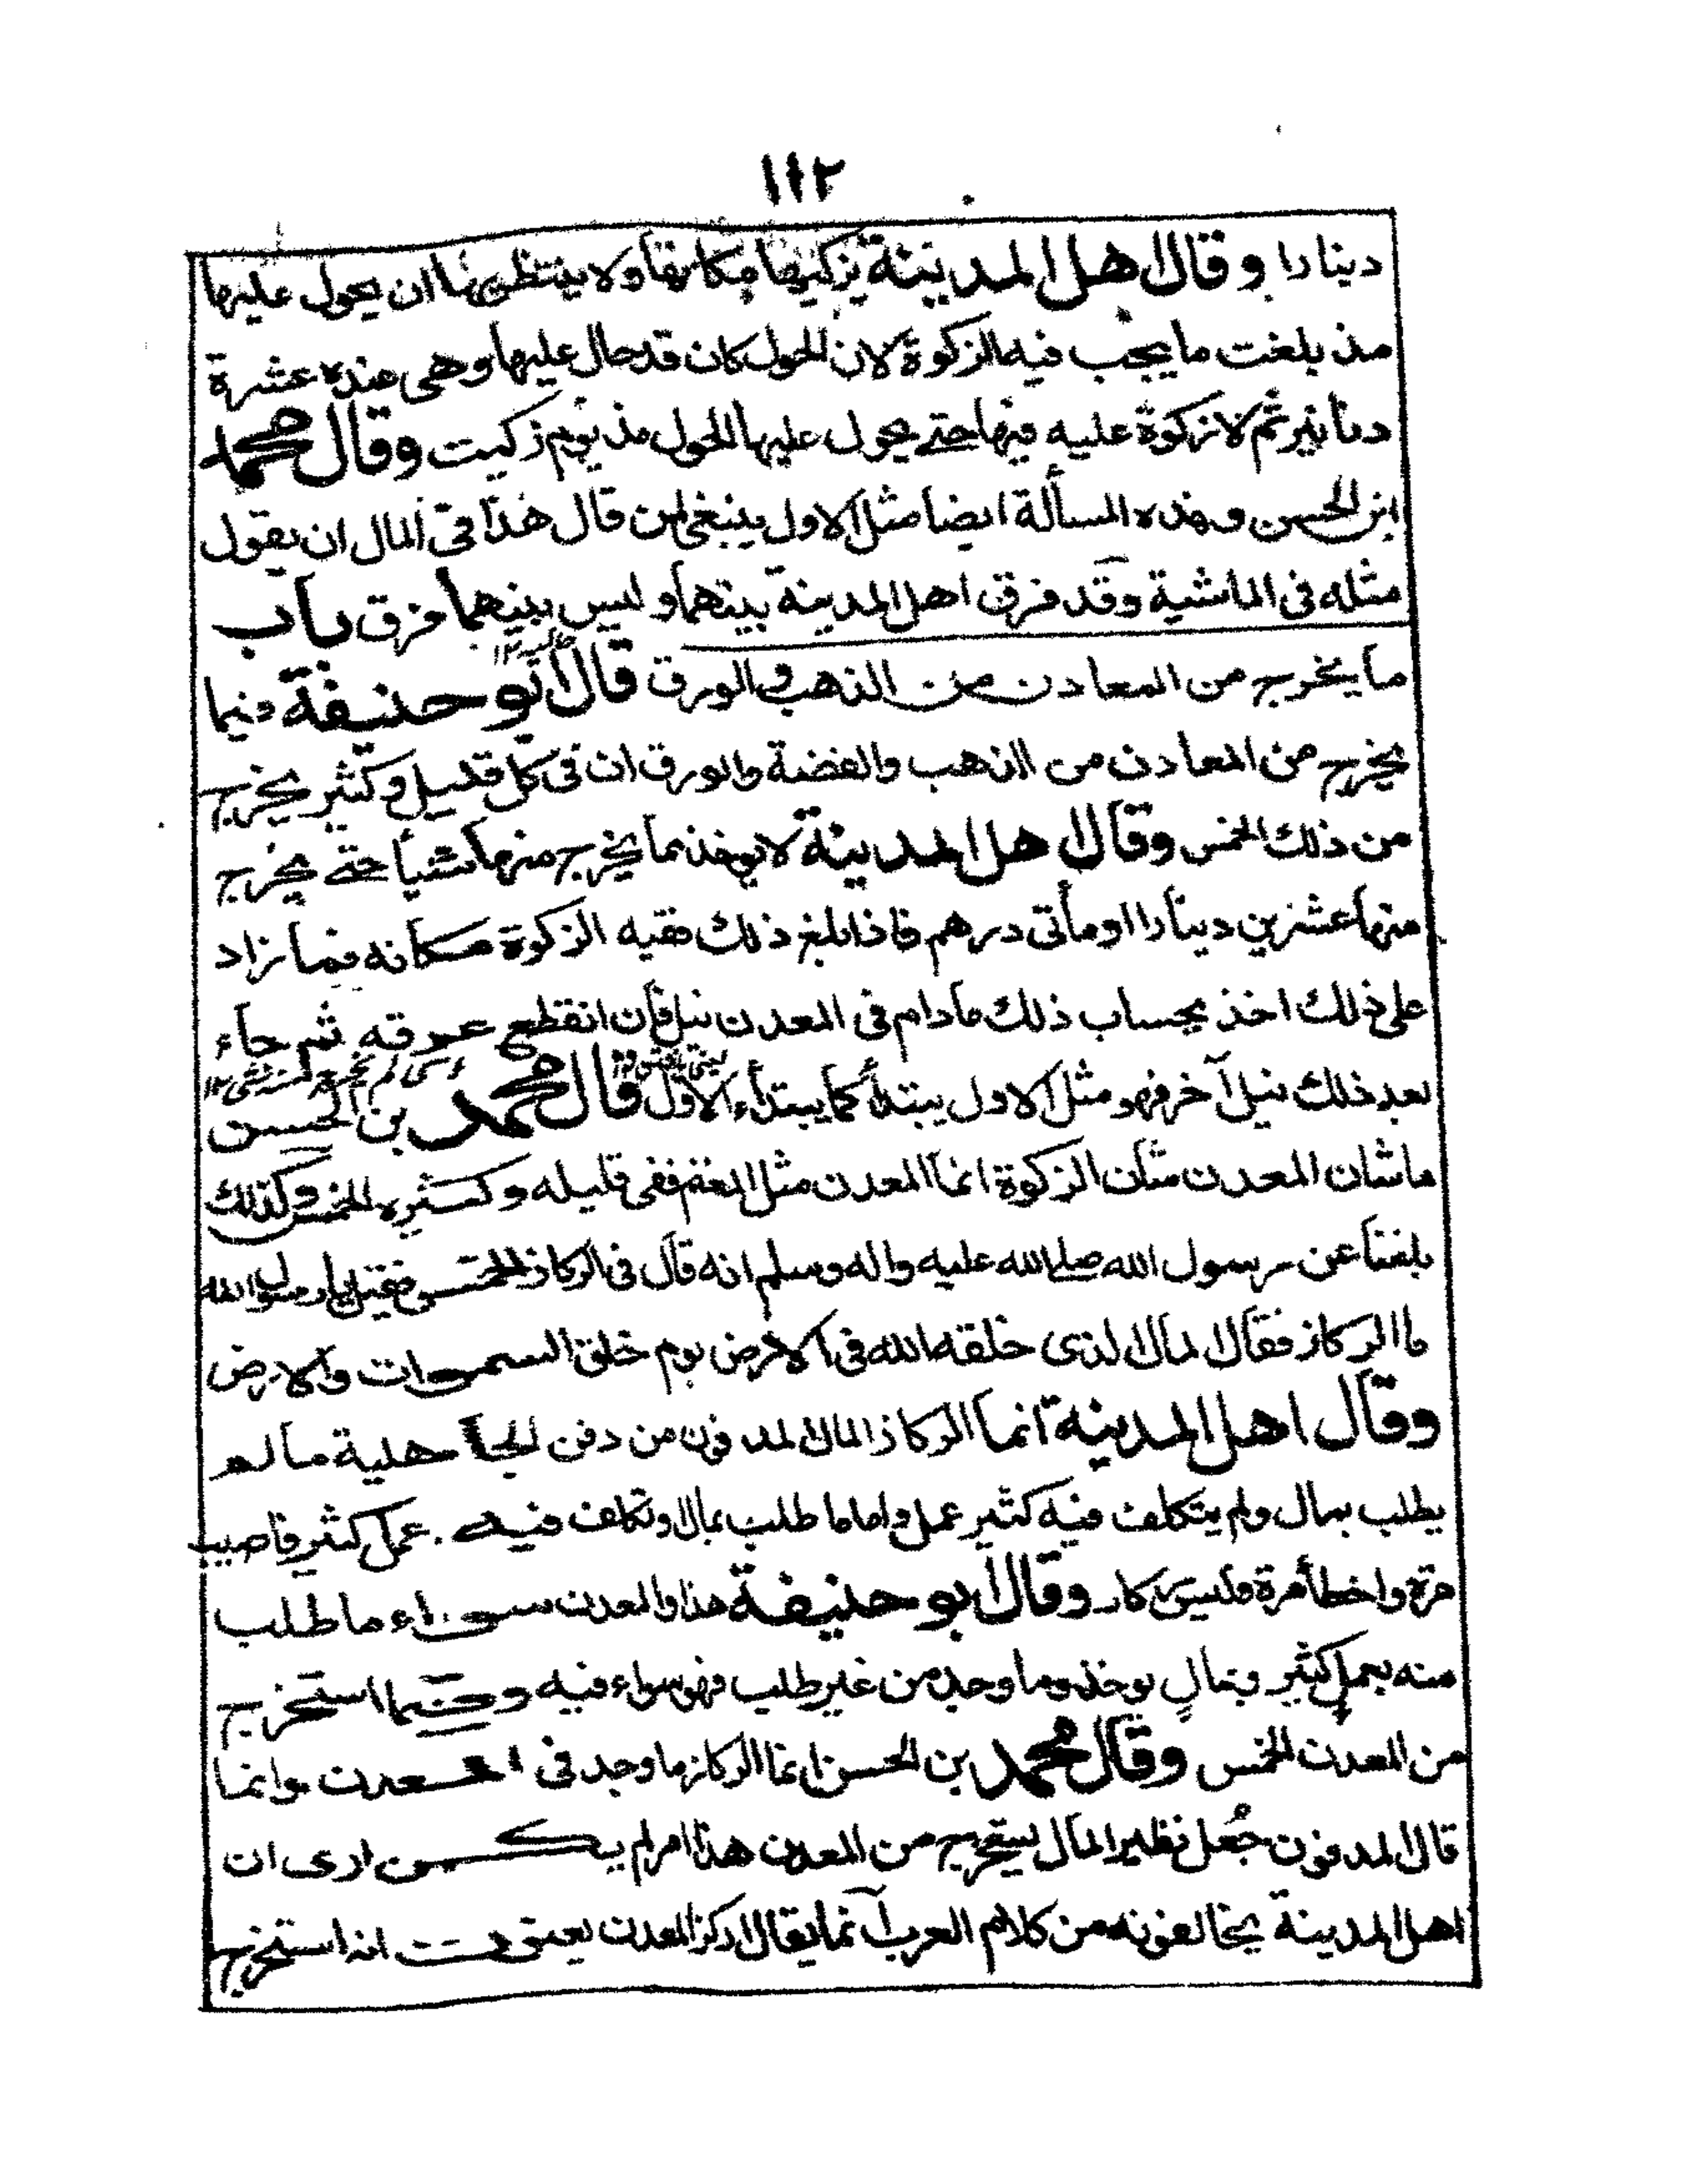 ١١٢
دينارا وقال اهل المدينة يزكيها مكانها ولا ينتظر بها ان يحول عليها
مذ بلغت ما يجب فيه الزكوة لان الحول كان قد حال عليها وهى عنده عشرة
دنانير ثم لا زكوة عليه فيها حتى يحول عليها الحول مذ يوم زكيت وقال محمد
ابن الحسن وهذه المسألة ايضا مثل الاول ينبغى لمن قال هذا فى المال ان يقول
مثله فى الماشية وقد فرق اهل المدينة بينهما وليس بينهما فرق باب
ما يخرج من المعادن من الذهب والورق قال ابو حنيفة فيما
يخرج من المعادن من الذهب والفضة والورق ان فى كل قليل وكثير يخرج
من ذلك الخمس وقال هل المدينة لا يوخذ مما يخرج منها شيأ حتى يخرج
منها عشرين دينارا او مأتى درهم فاذا بلغ ذلك ففيه الزكوة مكانه فما زاد
على ذلك اخذ بحساب ذلك ما دام فى المعدن نيل فأن انقطع عرقه ثم جاء
بعد ذلك نيل آخر فهو مثل الاول يبتدأ كما يبتدأء الاول قال محمد بن الحسن
ما شان المعدن شأن الزكوة انما المعدن مثل المغنم ففى قليله وكثيره الخمس وكذلك
بلغنا عن رسول الله صلى الله عليه واله وسلم انه قال فى الركاز الخمس فقيل يا رسول الله
ما الركاز فقال المال الذى خلقه الله فى الارض يوم خلق السموات والارض
وقال اهل المدينة انما الركاز المال المدفون من دفن الجاهلية ما لم
يطلب بمال ولم يتكلف فيه كثير عمل واما ما طلب بمال وتكلف فيه عمل كثير فاصيب
مرة واخطأ مرة فليس بركاز وقال ابو حنيفة هذا والمعدن سواء ما طلب
منه بعمل كثير وبمال يوخذ وما وجد من غير طلب فهو سواء فيه وفيما استخرج
من المعدن الخمس وقال محمد بن الحسن انما الركاز ما وجد فى المعدن وانما
قال المدفون جعل نظير المال يستخرج من المعدن هذا امر لم يكن ارى ان
اهل المدينة يخالفونه من كلام العرب انما يقال اركز المعدن يعنى انه استخرج